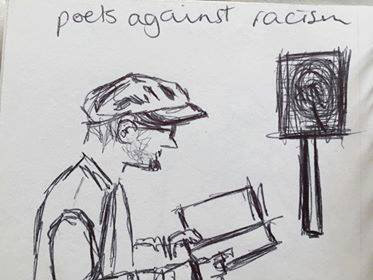 poets against racism